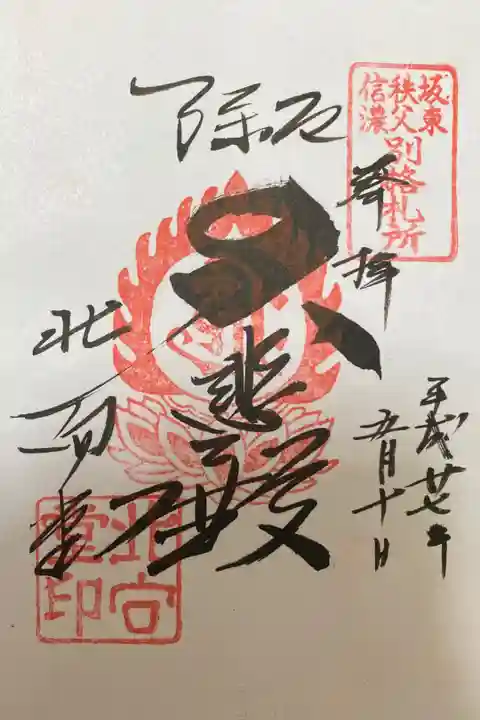 坂東
秩父
信濃
別格札所
奉拝
平成廿七年
五月十日
厄除
大悲殿
北向堂
北向堂印